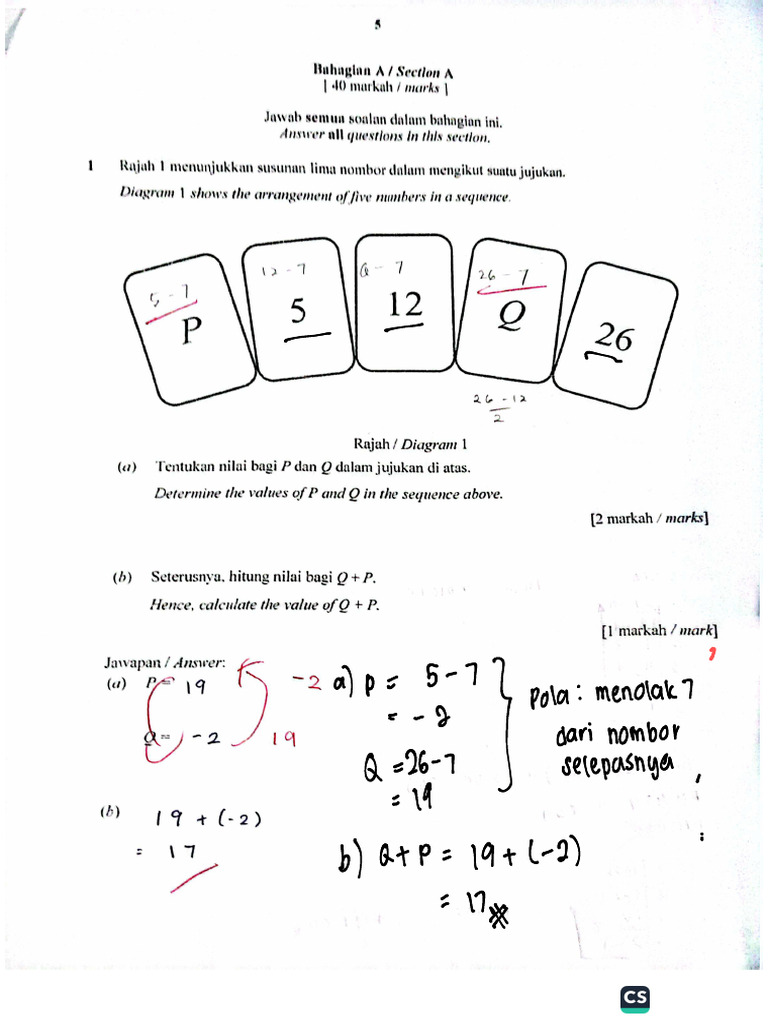 5
Bahagian A / Section A
[ 40 markah / marks ]
Jawab semua soalan dalam bahagian ini.
Answer all questions in this section.
1 Rajah 1 menunjukkan susunan lima nombor dalam mengikut suatu jujukan.
Diagram 1 shows the arrangement of five numbers in a sequence.
5 - 7 12 - 7 Q - 7 26 - 7
P 5 12 Q 26
26 - 12
2
Rajah / Diagram 1
(a) Tentukan nilai bagi P dan Q dalam jujukan di atas.
Determine the values of P and Q in the sequence above.
[2 markah / marks]
(b) Seterusnya, hitung nilai bagi Q + P.
Hence, calculate the value of Q + P.
[1 markah / mark]
Jawapan / Answer:
(a) P = 19 -2
Q = -2 19
(b) 19 + (-2)
= 17
a) P = 5 - 7
= - 2
Q = 26 - 7
= 19
Pola : menolak 7
dari nombor
selepasnya
b) Q + P = 19 + (-2)
= 17
CS